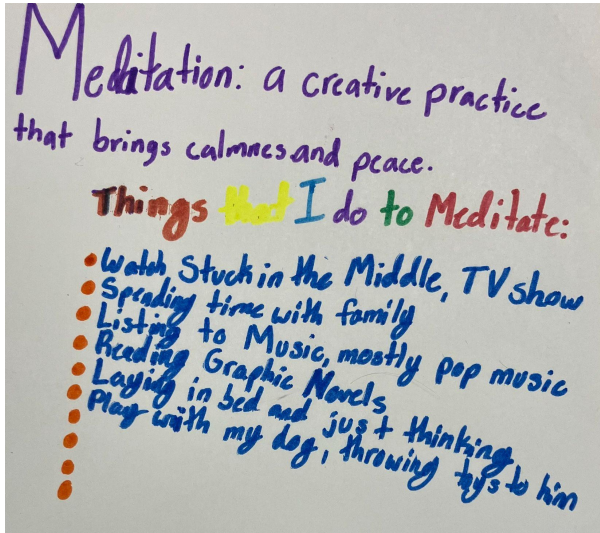 Meditation: a creative practice
that brings calmnes and peace.
Things that I do to Meditate:
Watch Stuck in the Middle, TV show
Spending time with family
Listing to Music, mostly pop music
Reading Graphic Novels
Laying in bed and just thinking
Play with my dog, throwing toys to him